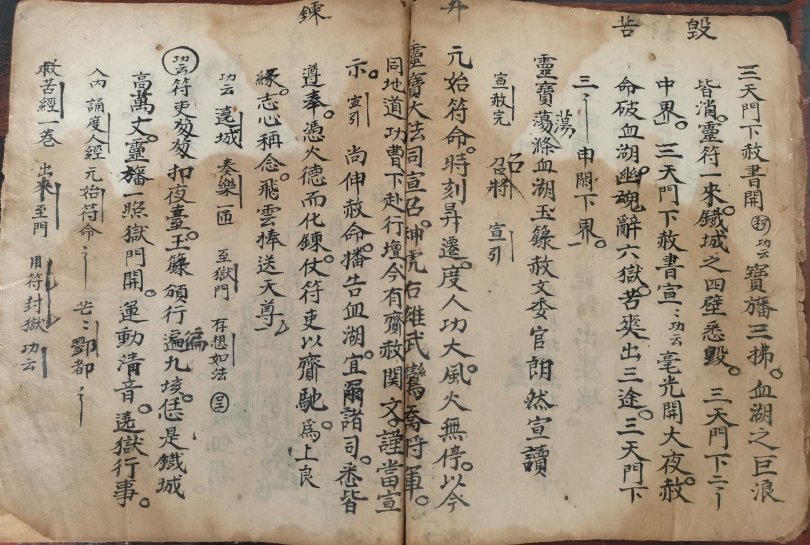 毀 苦
三天門下赦書開 功云 寶旛三拂。血湖之巨浪
皆消。靈符一來。鐵城之四壁悉毀。三天門下二
中界。三天門下赦書宣 功云 毫光開大夜。赦
命破血湖。幽魂辭六獄。苦爽出三途。三天門下
三 申闢下界。
靈寶蕩滌血湖玉籙赦文委官朗然宣讀
蕩
宣赦完 召將 宣引
昇
元始符命。時刻昇遷。度人功大。風火無停。以今
靈寶大法司宣召。神虎右雄武鸞喬將軍。
同地道功曹下赴行壇今有齎赦関文。謹當宣
示。宣引 尚伸赦命。播告血湖。宜爾諸司。悉皆
鍊
遵奉。憑火德而化鍊。仗符吏以齎馳。爲上良
緣。志心稱念。飛雲捧送天尊
功云 遶城 奏樂一匝 至獄門 存想如法
功云 符吏芴芴扣夜臺。玉籙頒行遍九垓。恁是鐵城
高萬丈。靈旛一照獄門開。運動清音。遶獄行事。
入內誦度人經元始符命 苦 酆都
救苦經一卷 出來至門 用符封獄 功云